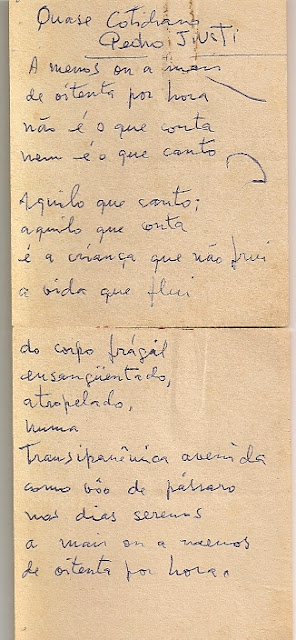 Quase Cotidiano
Pedro Justi
A menos ou a mais
de oitenta por hora
não é o que conta
nem é o que canto
Aquilo que canto;
aquilo que conta
é a criança que não frui
a vida que flui
do corpo frágil
ensangüentado,
atropelado,
numa
Transipanêmica avenida
como vôo de pássaro
nos dias serenos
a mais ou a menos
de oitenta por hora.